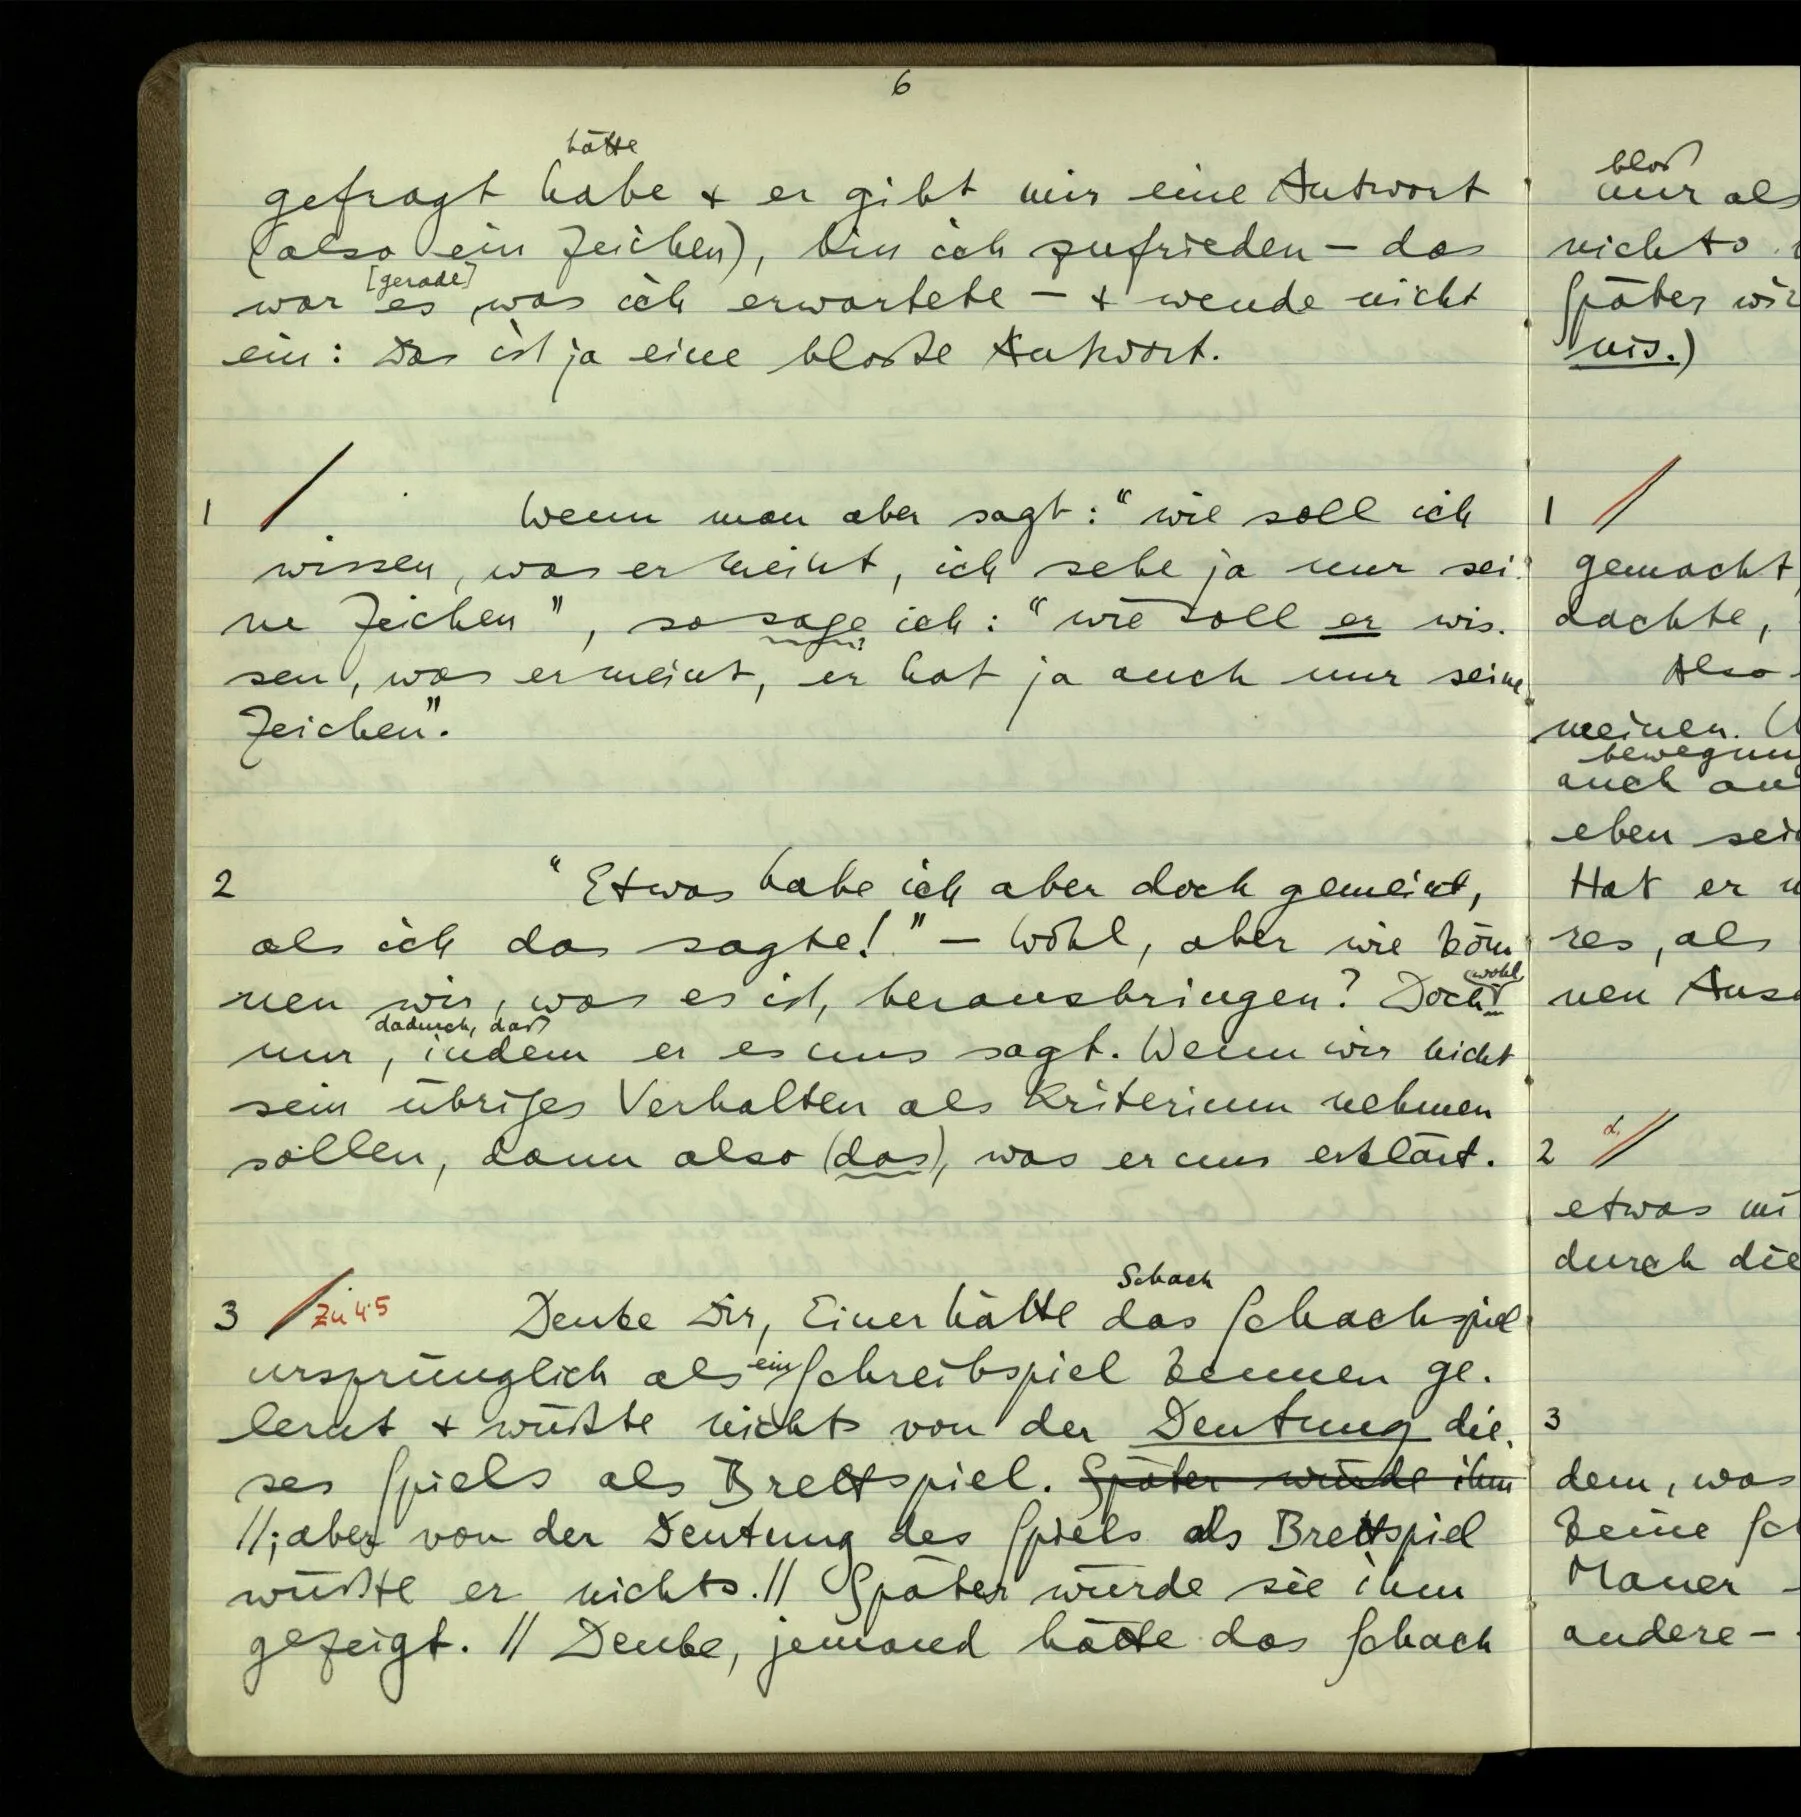 6
hätte
gefragt habe + er gibt mir eine Antwort
(also ein Zeichen), bin ich zufrieden – das
[gerade]
war es, was ich erwartete – + wende nicht
ein: Das ist ja eine bloße Antwort.
1 / Wenn man aber sagt: “wie soll ich
wissen, was er meint, ich sehe ja nur sei-
ne Zeichen”, so sage ich: “wie soll er wis-
sen, was er meint, er hat ja auch nur seine
Zeichen”.
2 “Etwas habe ich aber doch gemeint,
als ich das sagte!” – Wohl, aber wie kön
(wohl)
nen wir, was es ist, herausbringen? Doch
dadurch, daß
nur, indem er es uns sagt. Wenn wir nicht
sein übriges Verhalten als Kriterium nehmen
sollen, dann also (das), was er uns erklärt.
Schach
3 / Zu 4·5 Denke Dir, Einer hätte das Schachspiel
ursprünglich als ein Schreibspiel kennen ge-
lernt + wüßte nichts von der Deutung die-
ses Spiels als Brettspiel. Später würde ihm
//; aber von der Deutung des Spiels als Brettspiel
wüßte er nichts.// Später würde sie ihm
gezeigt. // Denke, jemand hätte das Schach
bloß
nur als
nichts
Später wir
nis.)
1 //
gemacht,
dachte,
Also
meinen.
bewegun
auch an
eben sei
Hat er
res, als
nen Aus
2 d. //
etwas mi
durch die
3
dem, was
keine Sch
Mauer –
andere –